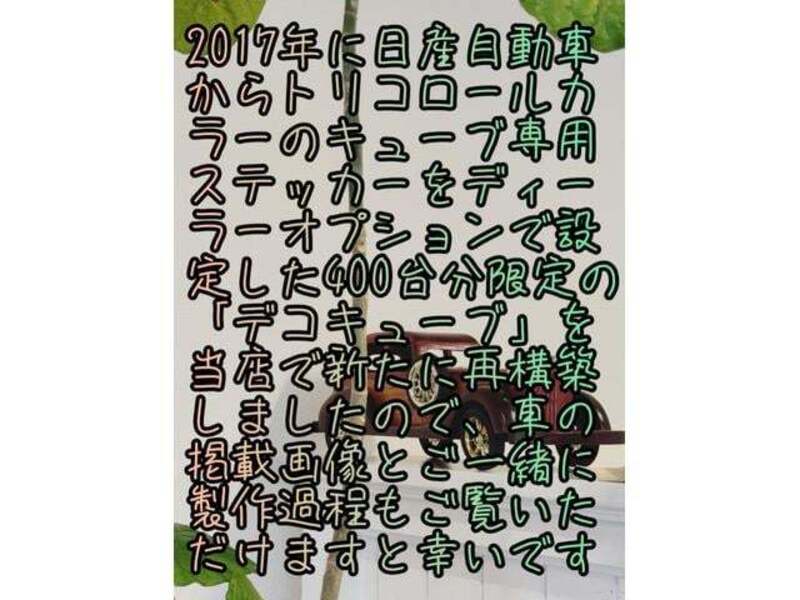 2017年に日産自動車
からトリコロールカ
ラーのキューブ専用
ステッカーをディー
ラーオプションで設
定した400台分限定の
「デコキューブ」を
当店で新たに再構築
しましたので、車の
掲載画像とご一緒に
製作過程もご覧いた
だけますと幸いです